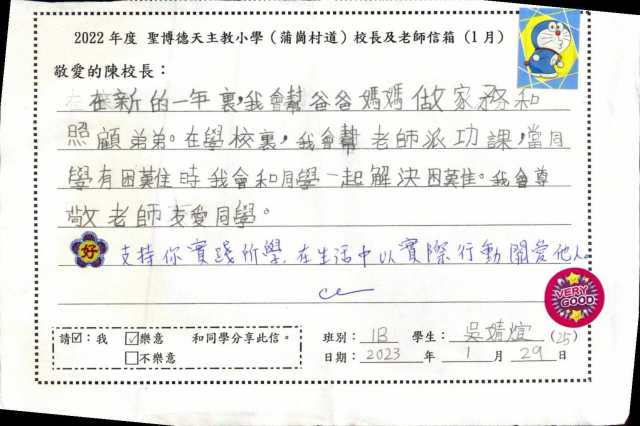 2022 年度 聖博德天主教小學（蒲崗村道）校長及老師信箱（1 月）
敬愛的陳校長：
在新的一年裏，我會幫爸爸媽媽做家務和
照顧弟弟。在學校裏，我會幫老師派功課，當同
學有困難時我會和同學一起解決困難。我會尊
敬老師友愛同學。
好 支持你實踐所學，在生活中以實際行動關愛他人。
VERY GOOD
請☑：我 ☑樂意 和同學分享此信。
□不樂意
班別：1B 學生：吳婧煊 (25)
日期：2023 年 1 月 29 日